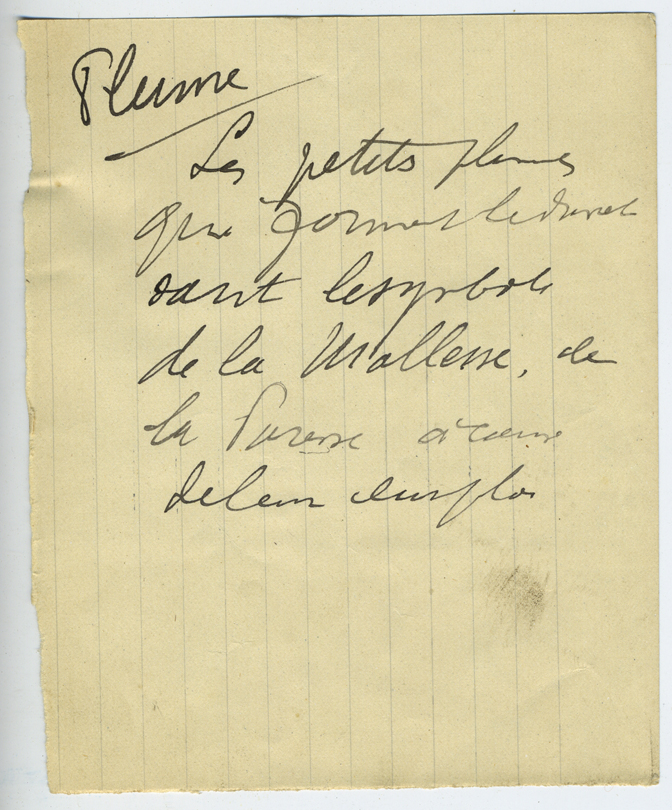 Plume
Les petits plumes
que forment le duvet
sont le symbole
de la Mollesse, de
la Paresse à cause
de leur emploi